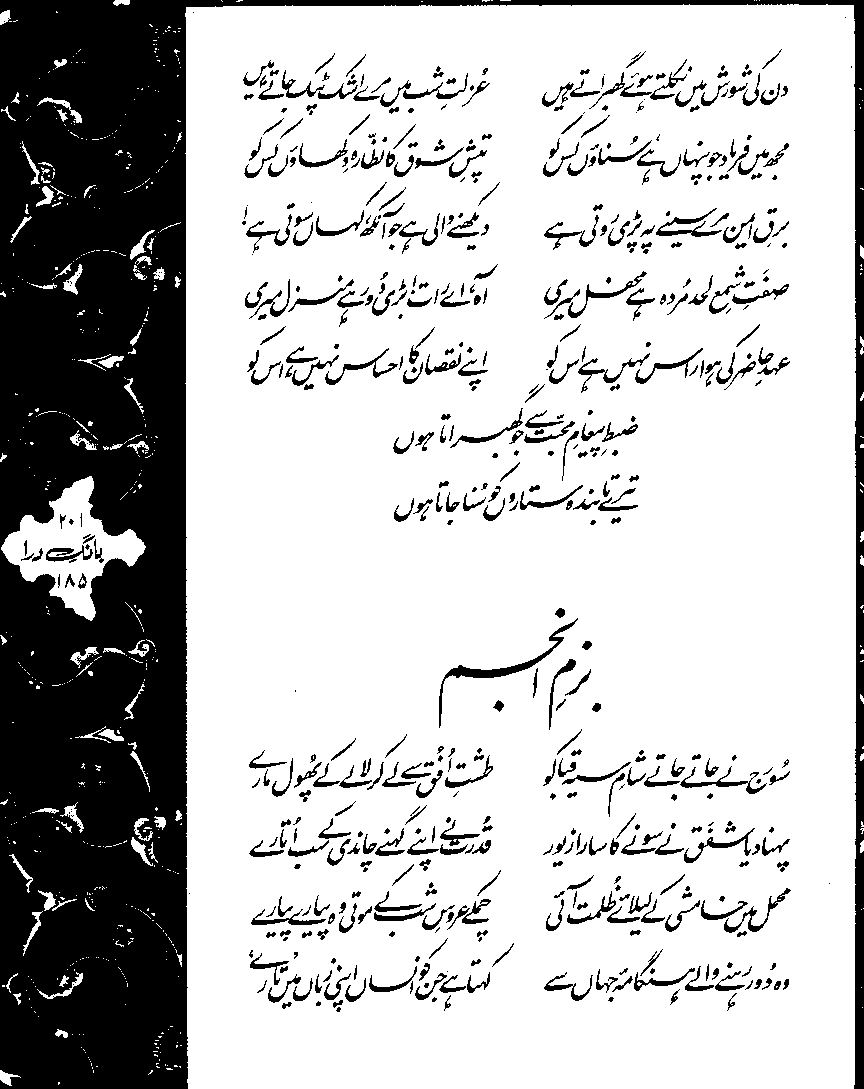 دن کی شورش میں نکلتے ہوئے گھبراتے ہیں عُزلتِ شب میں مرے اشک ٹپک جاتے ہیں
مجھ میں فریاد جو پنہاں ہے سُناؤں کس کو تپشِ شوق کا نظّارہ دکھاؤں کس کو
برقِ ایمن مرے سینے پہ پڑی روتی ہے دیکھنے والی ہے جو آنکھ، کہاں سوتی ہے!
صفَتِ شمعِ لحد مُردہ ہے محفل میری آہ، اے رات! بڑی دُور ہے منزل میری
عہدِ حاضر کی ہوا راس نہیں ہے اس کو اپنے نقصان کا احساس نہیں ہے اس کو
ضبطِ پیغامِ محبّت سے جو گھبراتا ہوں
تیرے تابندہ ستاروں کو سُنا جاتا ہوں
۲۰۱
بانگِ درا
۱۸۵
بزمِ انجم
سُورج نے جاتے جاتے شامِ سیہ قبا کو طشتِ اُفُق سے لے کر لالے کے پھُول مارے
پہنا دیا شفَق نے سونے کا سارا زیور قُدرت نے اپنے گہنے چاندی کے سب اُتارے
محمل میں خامشی کے لیلائے ظُلمت آئی چمکے عروسِ شب کے موتی وہ پیارے پیارے
وہ دُور رہنے والے ہنگامۂ جہاں سے کہتا ہے جن کو انساں اپنی زباں میں ’تارے‘